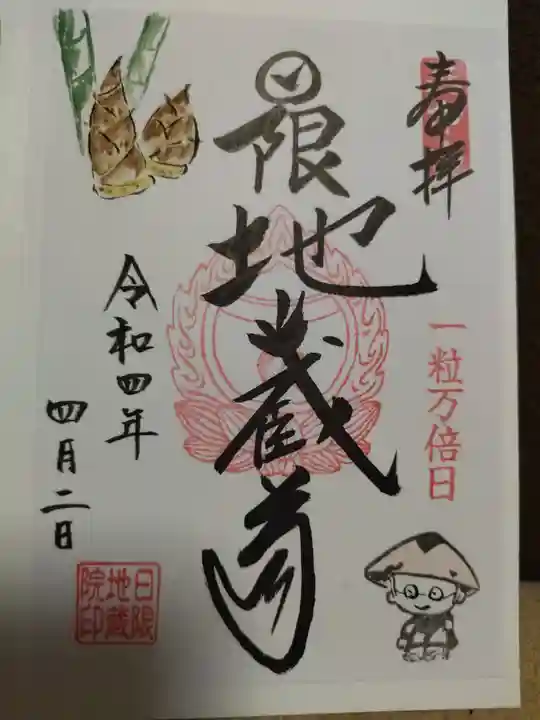 奉拝
一粒万倍日
日限
地蔵尊
令和四年
四月二日
日限
地蔵
院印